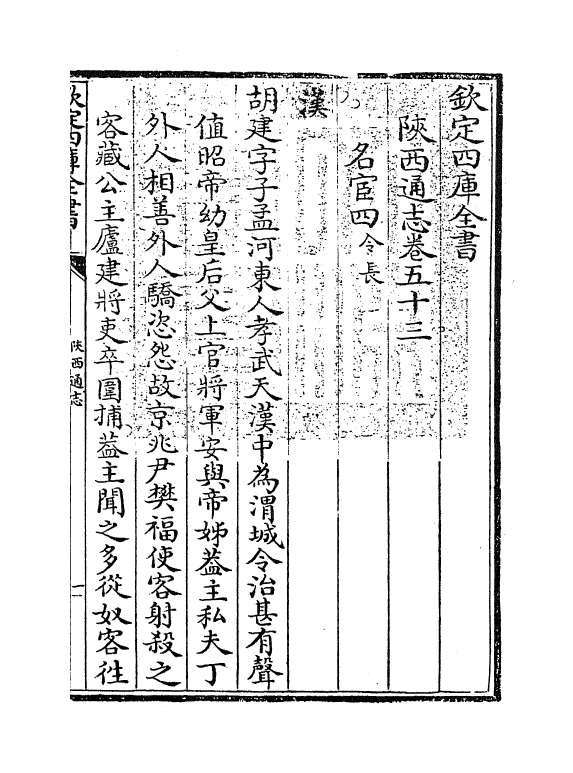 欽定四庫全書
陜西通志卷五十三
名宦四令長
漢
胡建字子孟河東人孝武天漢中為渭城令治甚有聲
值昭帝幼皇后父上官將軍安與帝姊葢主私夫丁
外人相善外人驕恣怨故京兆尹樊福使客射殺之
客藏公主廬建將吏卒圍捕葢主聞之多從奴客徃
欽定四庫全書
陜西通志
一